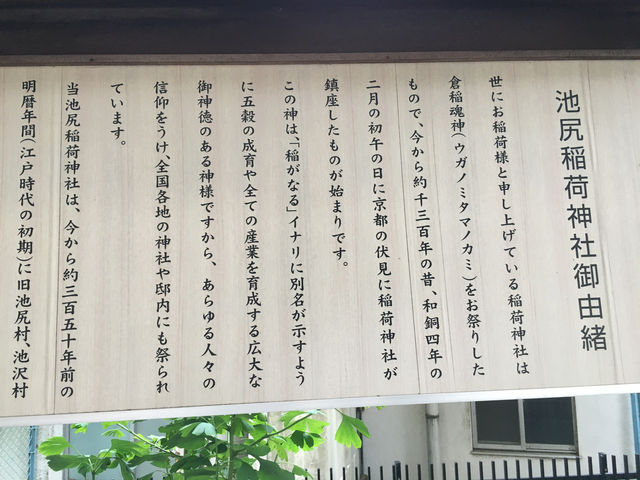 池尻稲荷神社御由緒
世にお稲荷様と申し上げている稲荷神社は
倉稲魂神(ウガノミタマノカミ)をお祭りした
もので、今から約千三百年の昔、和銅四年の
二月の初午の日に京都の伏見に稲荷神社が
鎮座したものが始まりです。
この神は、「稲がなる」イナリに別名が示すよう
に五穀の成育や全ての産業を育成する広大な
御神徳のある神様ですから、あらゆる人々の
信仰をうけ、全国各地の神社や邸内にも祭られ
ています。
当池尻稲荷神社は、今から約三百五十年前の
明暦年間(江戸時代の初期)に旧池尻村、池沢村